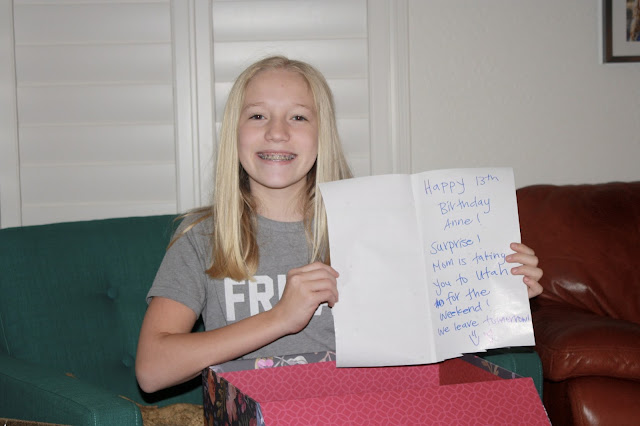 Happy 13th
Birthday
Anne!
Surprise!
Mom is taking
you to Utah
for the
weekend!
We leave tomorrow!
FRI